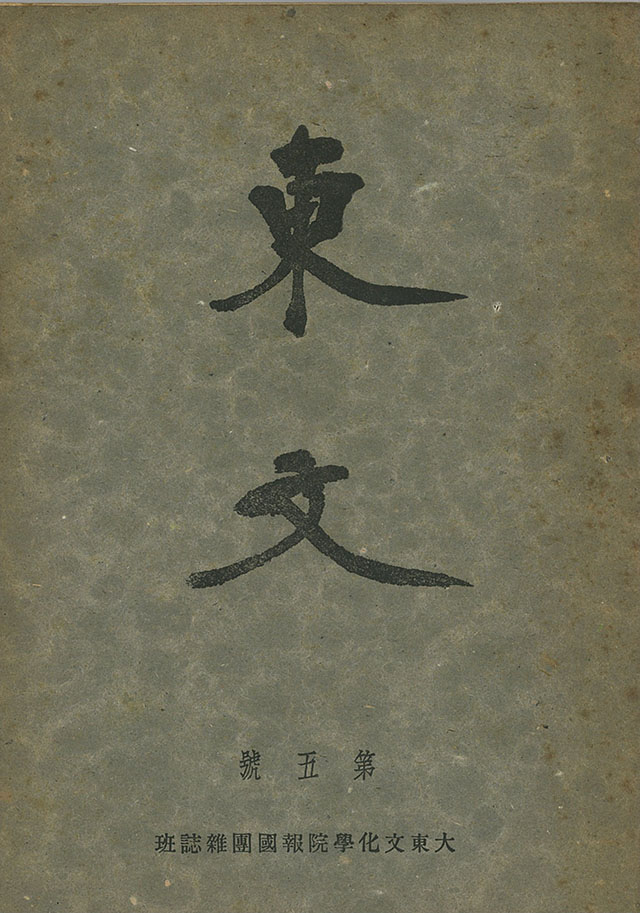 東文
第五號
大東文化學院報國團雜誌班